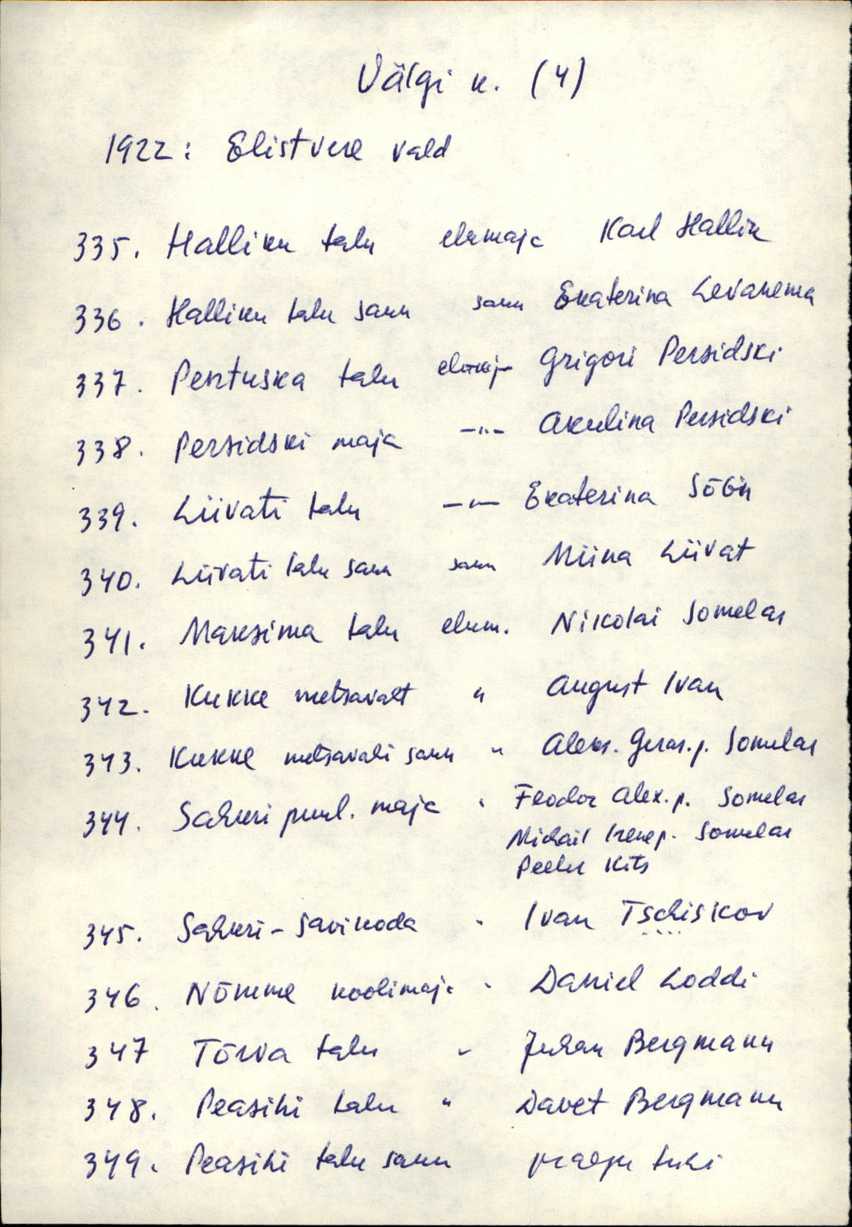 Välgi k. (4)
1922: Elistvere vald
335. Halliku talu elumaja Karl Hallik
336. Halliku talu saun saun Ekaterina Levanema
337. Pentuska talu elumaja Grigori Persidski
338. Persidski maja -"- Akulina Persidski
339. Liivati talu -"- Ekaterina
340. Liivati talu saun saun Miina Liivat
341. Maksima talu elum. Nikolai Somelar
342. Kukke metsavaht " August Ivan
343. Kukke metsavahi saun " Aleks. Geras.p. Somelar
344. Sahkri puul. maja " Feodor Alex.p. Somelar
Michail Irenep. Somelar
Peeter Kits
345. Sahkri-Savikoda " Ivan Tschiskov
346. Nõmme koolimaja " Daniel Loddi
347 Tõrva talu " Juhan Bergmann
348. Peasihi talu " Davet Bergmann
349. Peasihi talu saun praegu tühi